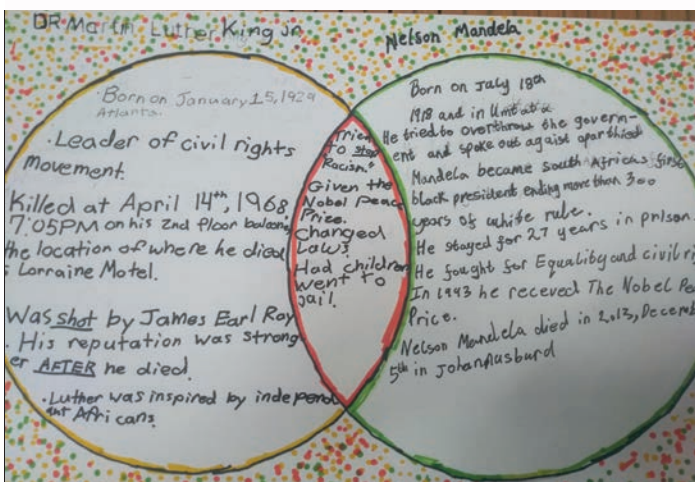 DR Martin Luther King jr
Nelson Mandela
. Born on January 15, 1929
Atlanta.
. Leader of civil rights
movement.
Killed at April 14th, 1968
7:05PM on his 2nd floor balcony
the location of where he died
s Lorraine Motel.
Was shot by James Earl Ray
. His reputation was strong
er AFTER he died
. Luther was inspired by independ
ant Africans
Tried
to stop
Racism
Given the
Nobel peace
Price.
changed
Laws.
Had children
went to
jail.
Born on July 18th
1918 and in Umtata
He tried to overthrow the governm-
ent and spoke out agaist aparthied
Mandela became South Africas first
black president ending more than 300
years of white rule.
He stayed for 27 years in prison
He fought for Equality and civil ri
In 1993 he receved The Nobel Pe
Price.
Nelson Mandela died in 2013, Decemb
5th in